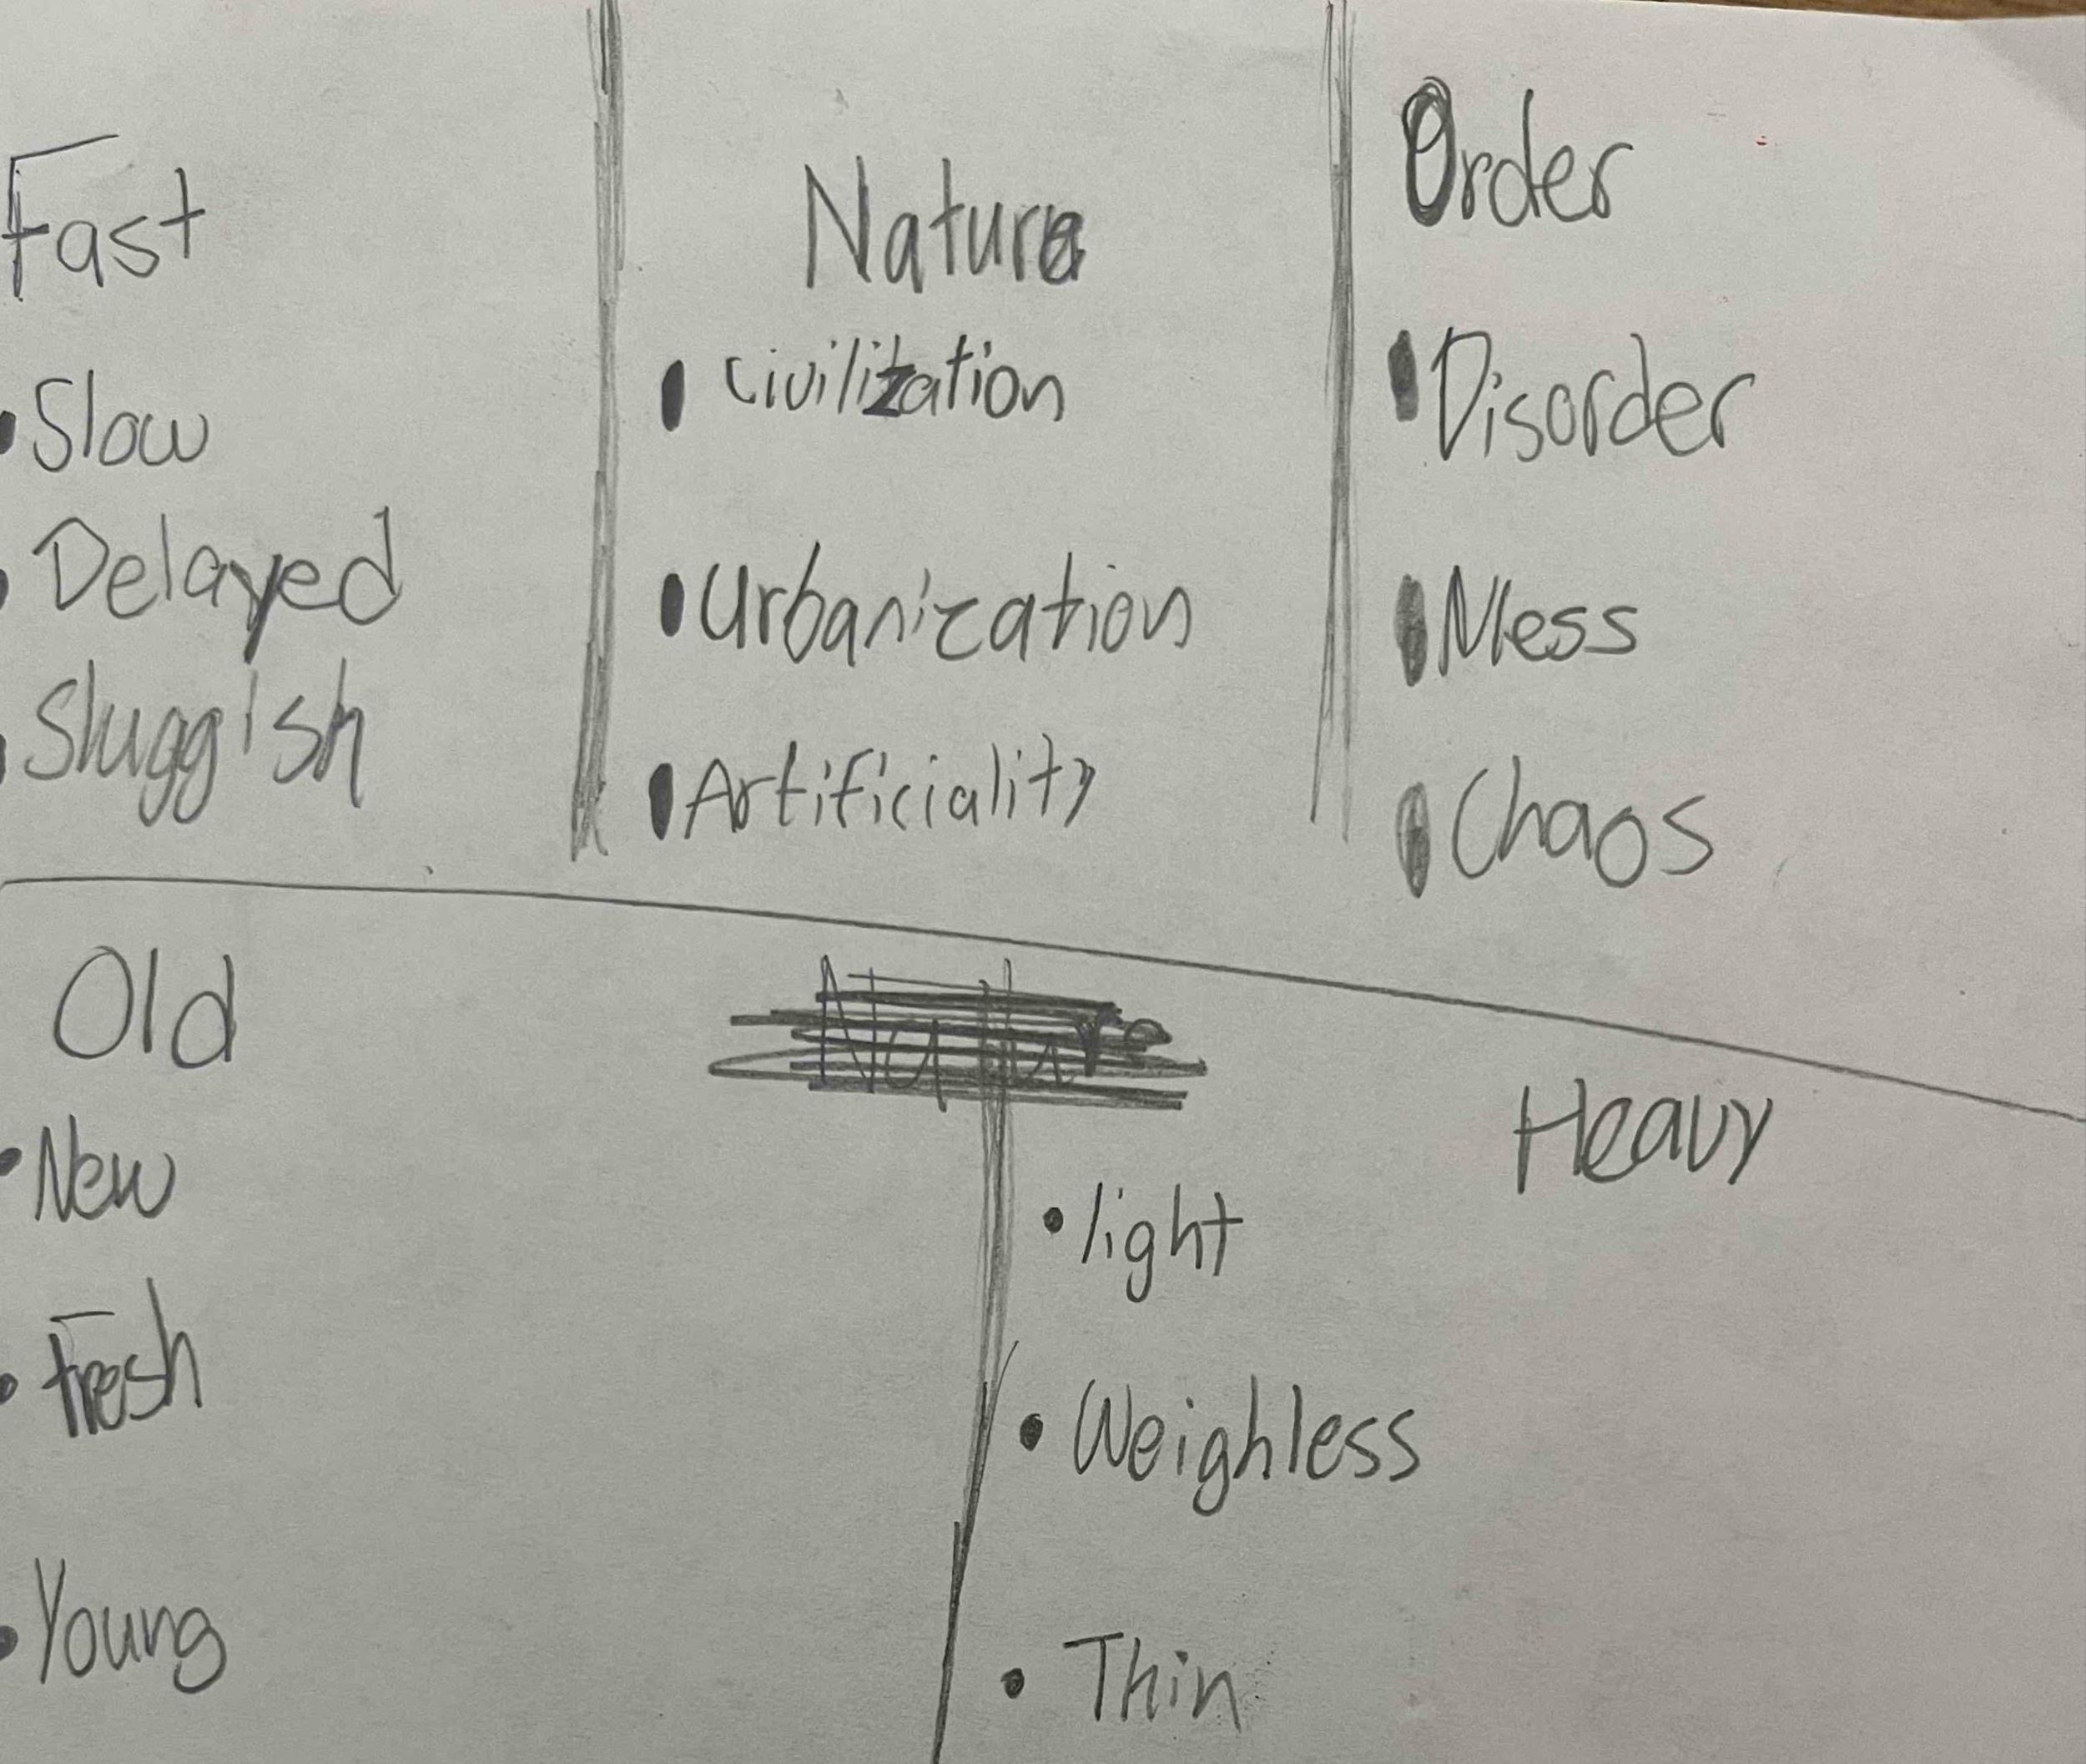 Fast
• Slow
• Delayed
• Sluggish
Nature
• Civilization
• Urbanization
• Artificiality
Order
• Disorder
• Mess
• Chaos
Old
• New
• Fresh
• Young
Nature
Heavy
• light
• Weighless
• Thin